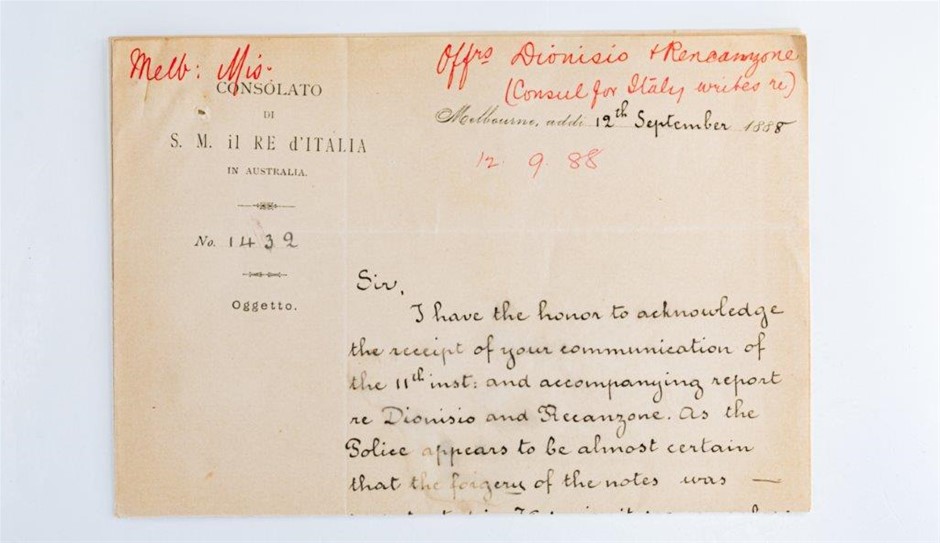 Melb: Mis.
Offrs Dionisio + Rencanzone
(Consul for Italy writes re)
CONSOLATO
DI
S. M. il RE d'ITALIA
IN AUSTRALIA.
Melbourne, addì 12th September 1888
12. 9. 88
No. 1432
Oggetto.
Sir,
I have the honor to acknowledge
the receipt of your communication of
the 11th inst: and accompanying report
re Dionisio and Reccanzone. As the
Police appears to be almost certain
that the forgery of the notes was —